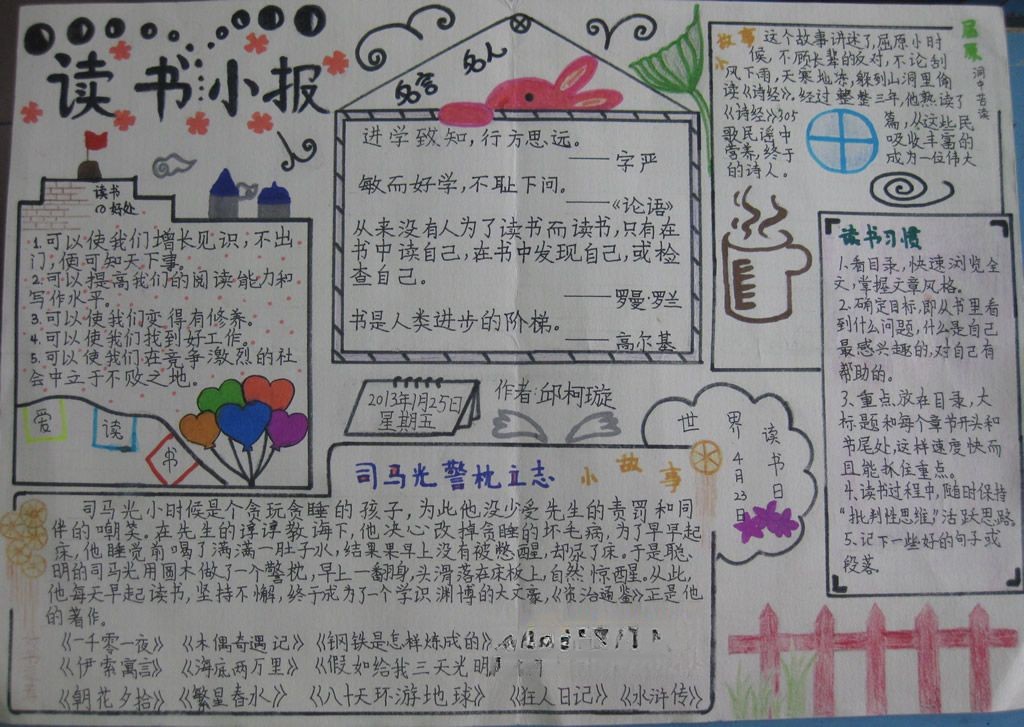 读书小报
读书
的好处
1.可以使我们增长见识,不出
门,便可知天下事。
2.可以提高我们的阅读能力和
写作水平。
3.可以使我们变得有修养。
4.可以使我们找到好工作。
5.可以使我们在竞争激烈的社
会中立于不败之地。
爱
读
书
名人
名言
进学致知,行方思远。
——字严
敏而好学,不耻下问。
——《论语》
从来没有人为了读书而读书,只有在
书中读自己,在书中发现自己,或检
查自己。
——罗曼·罗兰
书是人类进步的阶梯。
——高尔基
2013年1月25日
星期五
作者:邱柯璇
屈原
洞中苦读
故事
小
这个故事讲述了,屈原小时
候,不顾长辈的反对,不论刮
风下雨,天寒地冻,躲到山洞里偷
读《诗经》。经过整整三年,他熟读了
《诗经》305篇,从这些民
歌民谣中吸收丰富的
营养,终于成为一位伟大
的诗人。
读书习惯
1.看目录,快速浏览全
文,掌握文章风格。
2.确定目标,即从书里看
到什么问题,什么是自己
最感兴趣的,对自己有
帮助的。
3、重点放在目录,大
标题和每个章节开头和
节尾处,这样速度快而
且能抓住重点。
4.读书过程中,随时保持
“批判性思维,”活跃思路。
5、记下一些好的句子或
段落。
世界读书日
4月23日
司马光警枕立志
小故事
司马光小时候是个贪玩贪睡的孩子,为此他没少受先生的责罚和同
伴的嘲笑。在先生的谆谆教诲下,他决心改掉贪睡的坏毛病,为了早早起
床,他睡觉前喝了满满一肚子水,结果早上没有被憋醒,却尿了床。于是聪
明的司马光用圆木做了一个警枕,早上一翻身,头滑落在床板上,自然惊醒。从此,
他每天早起读书,坚持不懈,终于成为了一个学识渊博的大文豪,《资治通鉴》正是他
的著作。
《一千零一夜》《木偶奇遇记》《钢铁是怎样炼成的》
《伊索寓言》《海底两万里》《假如给我三天光明》
《朝花夕拾》《繁星春水》《八十天环游地球》《狂人日记》《水浒传》